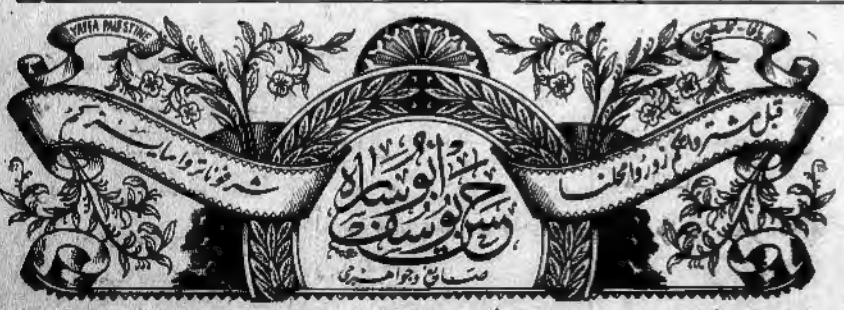 YAFFA PALESTINE
يافا - فلسطين
قبل مشتروايكم زوروا محلنا
شرفونا تروا ما يسركم
حسن يوسف ابو ساره
صايغ وجواهرجي